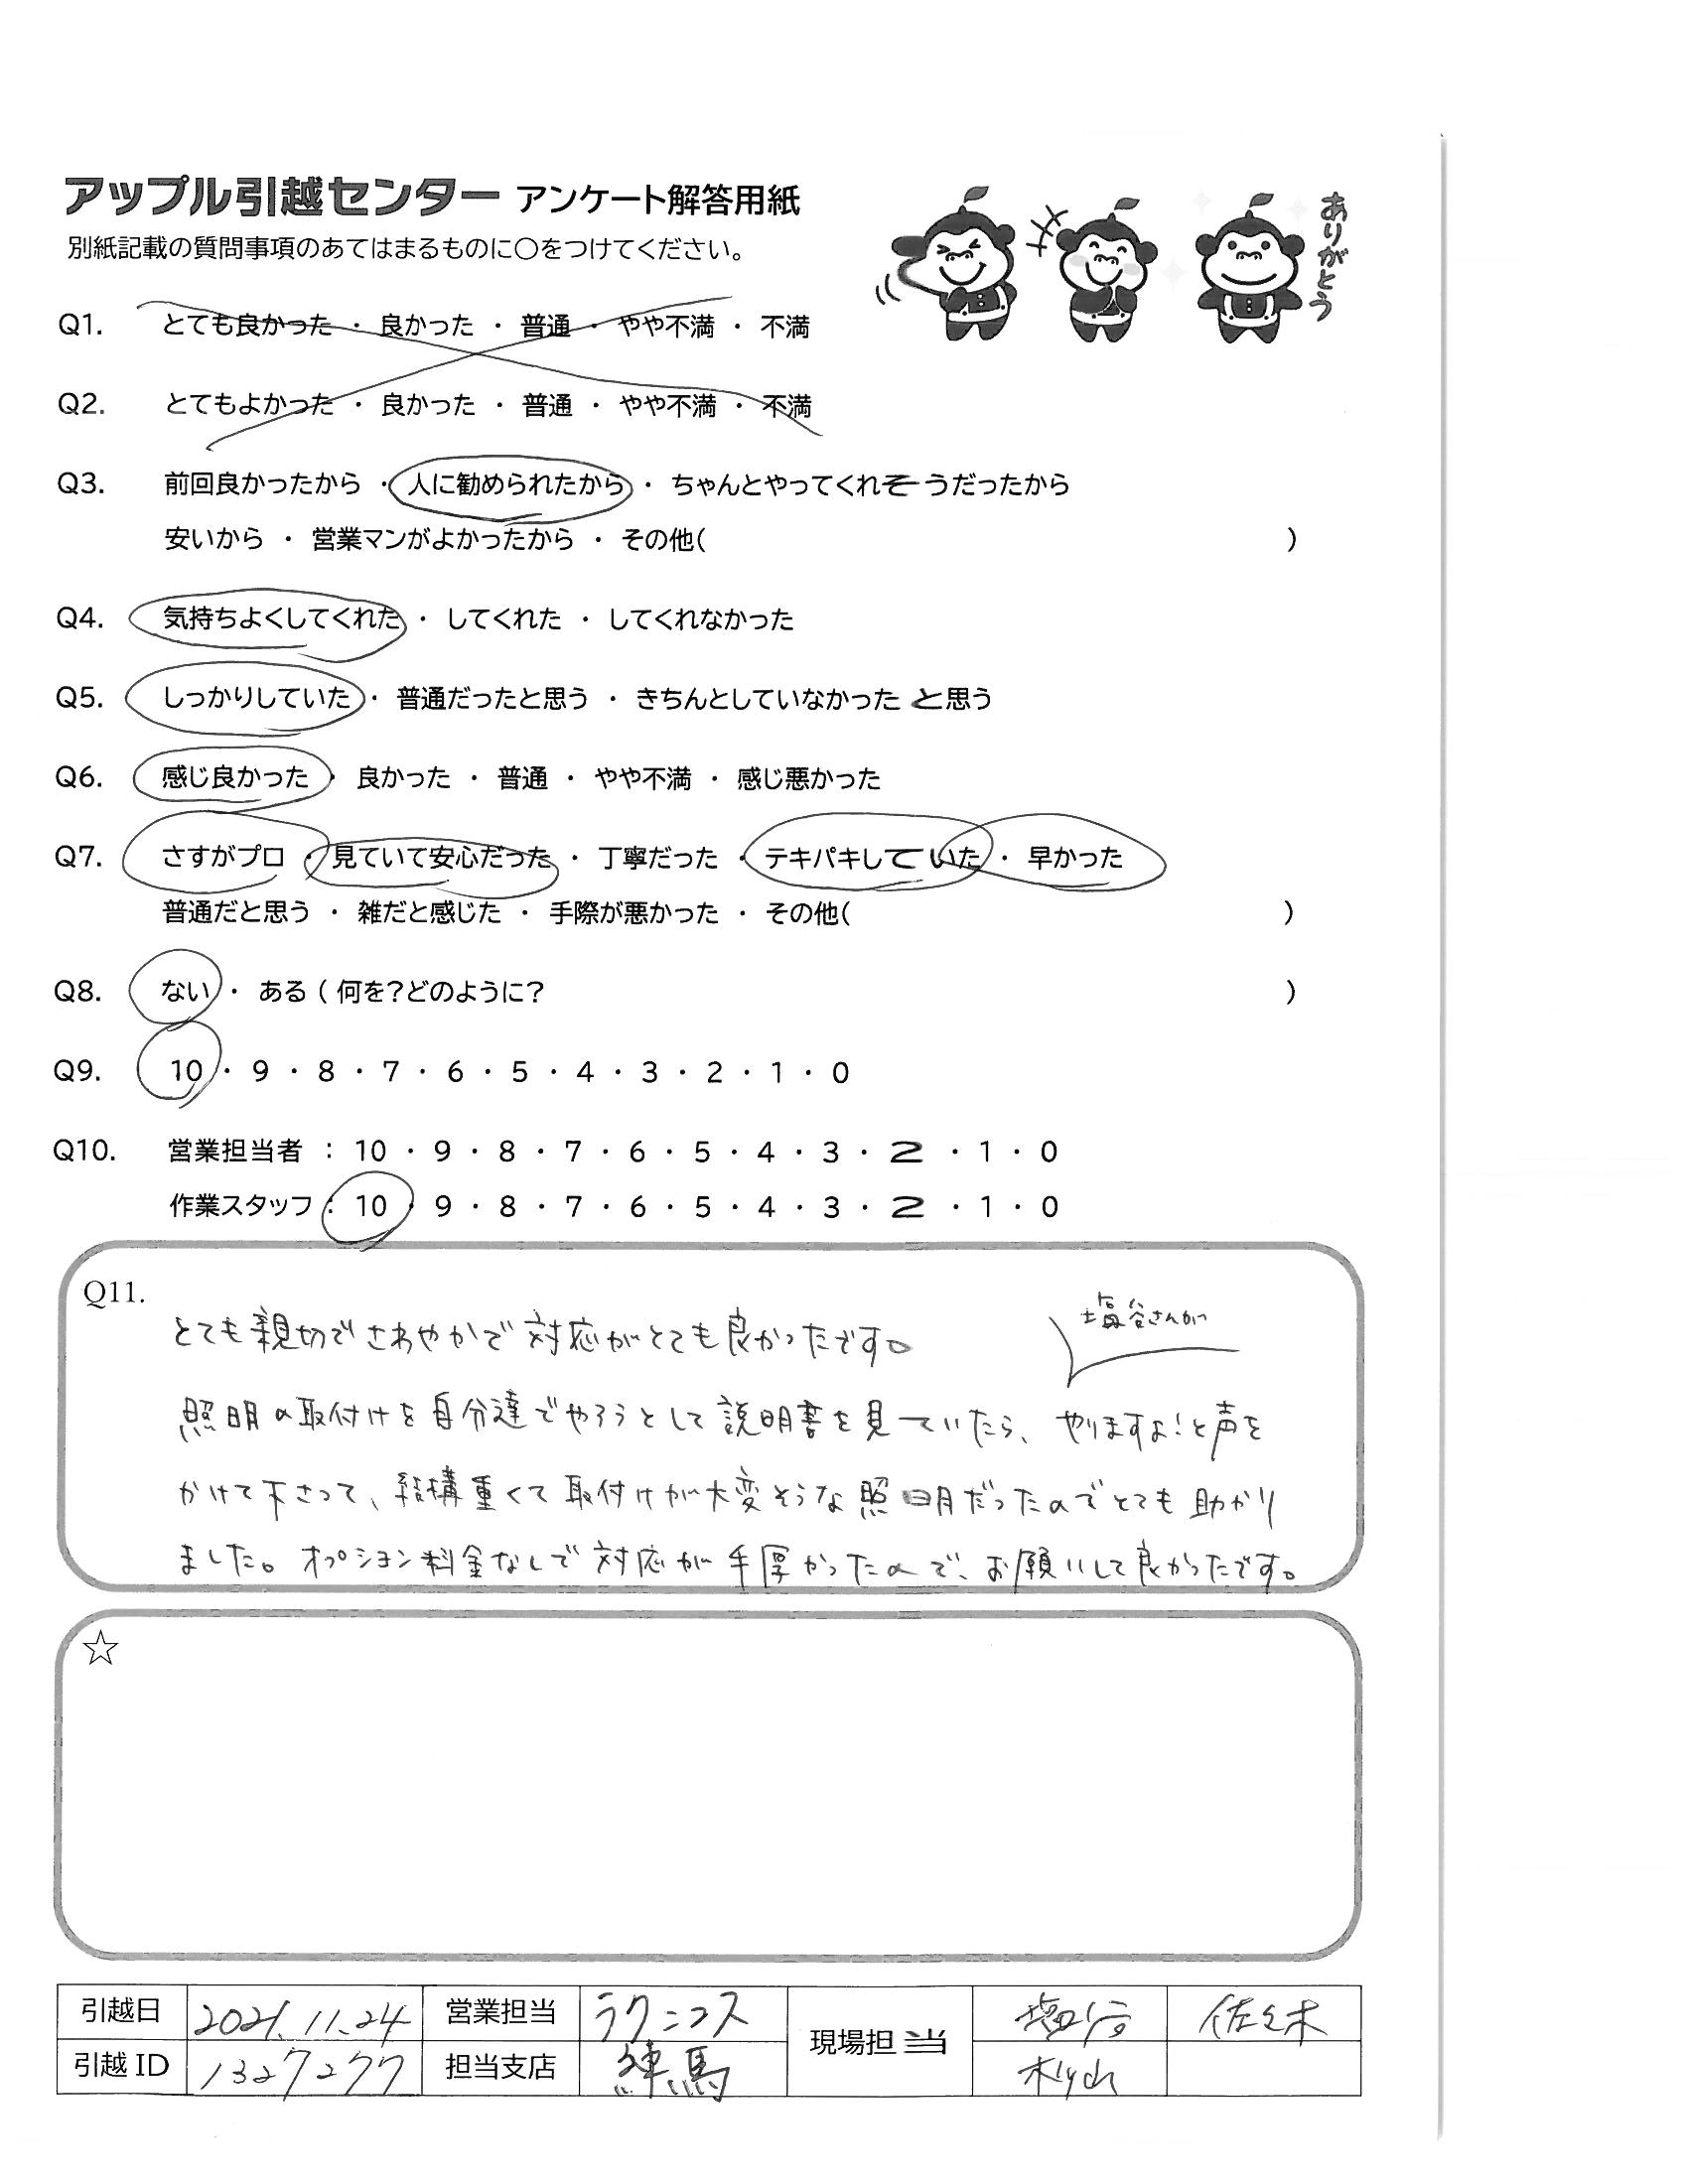 アップル引越センター アンケート解答用紙
別紙記載の質問事項のあてはまるものに○をつけてください。
ありがとう
Q1. とても良かった ・ 良かった ・ 普通 ・ やや不満 ・ 不満
Q2. とてもよかった ・ 良かった ・ 普通 ・ やや不満 ・ 不満
Q3. 前回良かったから ・ 人に勧められたから ・ ちゃんとやってくれそうだったから
安いから ・ 営業マンがよかったから ・ その他( )
Q4. 気持ちよくしてくれた ・ してくれた ・ してくれなかった
Q5. しっかりしていた ・ 普通だったと思う ・ きちんとしていなかったと思う
Q6. 感じ良かった ・ 良かった ・ 普通 ・ やや不満 ・ 感じ悪かった
Q7. さすがプロ ・ 見ていて安心だった ・ 丁寧だった ・ テキパキしていた ・ 早かった
普通だと思う ・ 雑だと感じた ・ 手際が悪かった ・ その他( )
Q8. ない ・ ある ( 何を?どのように? )
Q9. 10 ・ 9 ・ 8 ・ 7 ・ 6 ・ 5 ・ 4 ・ 3 ・ 2 ・ 1 ・ 0
Q10. 営業担当者 : 10 ・ 9 ・ 8 ・ 7 ・ 6 ・ 5 ・ 4 ・ 3 ・ 2 ・ 1 ・ 0
作業スタッフ : 10 ・ 9 ・ 8 ・ 7 ・ 6 ・ 5 ・ 4 ・ 3 ・ 2 ・ 1 ・ 0
Q11.
とても親切でさわやかで対応がとても良かったです。
塩谷さんが
照明の取付けを自分達でやろうとして説明書を見ていたら、やりますよ!と声を
かけて下さって、結構重くて取付けが大変そうな照明だったのでとても助かり
ました。オプション料金なしで対応が手厚かったので、お願いして良かったです。
☆
引越日 2021.11.24 営業担当 ラクニコス 現場担当 塩谷 佐々木
引越ID 1327277 担当支店 練馬 杉山